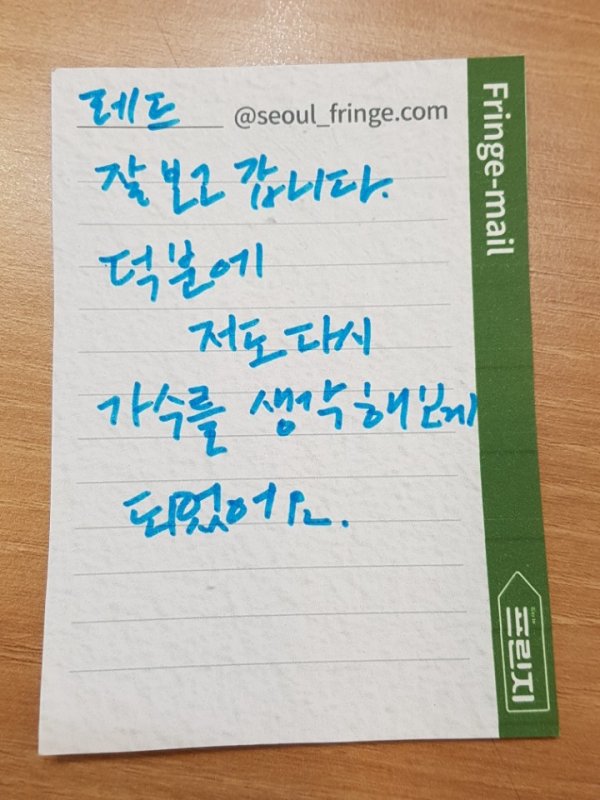 레드 @seoul_fringe.com
잘 보고 갑니다.
덕분에
저도 다시
가수를 생각해보게
되었어요.
Fringe-mail
프린지